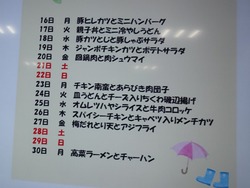 16日 月 豚ヒレカツとミニハンバーグ
17日 火 親子丼とミニ冷やしうどん
18日 水 豚カツとしと豚しゃぶサラダ
19日 木 ジャンボチキンカツとポテトサラダ
20日 金 回鍋肉と肉シュウマイ
21日 土
22日 日
23日 月 チキン南蛮とあらびき肉団子
24日 火 皿うどんとチーズ入りちくわ磯辺揚げ
25日 水 オムレツハヤシライスと牛肉コロッケ
26日 木 スパイシーチキンとキャベツ入りメンチカツ
27日 金 梅だれとり天とアジフライ
28日 土
29日 日
30日 月 高菜ラーメンとチャーハン